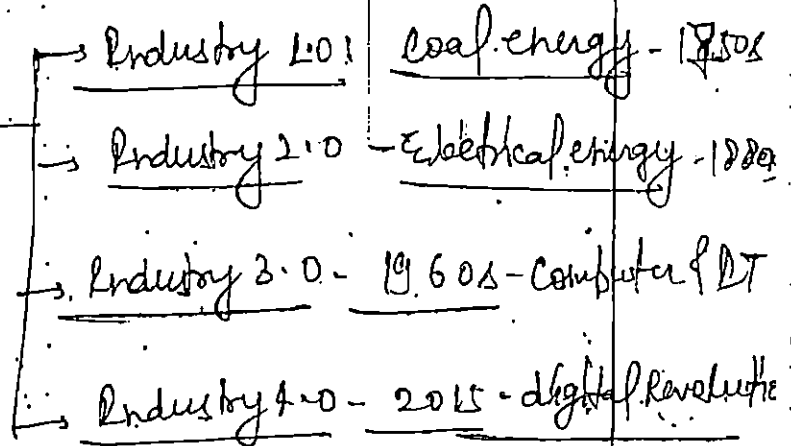 → Industry 1.0: Coal energy - 1750s
→ Industry 2.0 - Electrical energy - 1880
→ Industry 3.0 - 1960s - Computer & IT
→ Industry 4.0 - 2015 - digital Revolutio